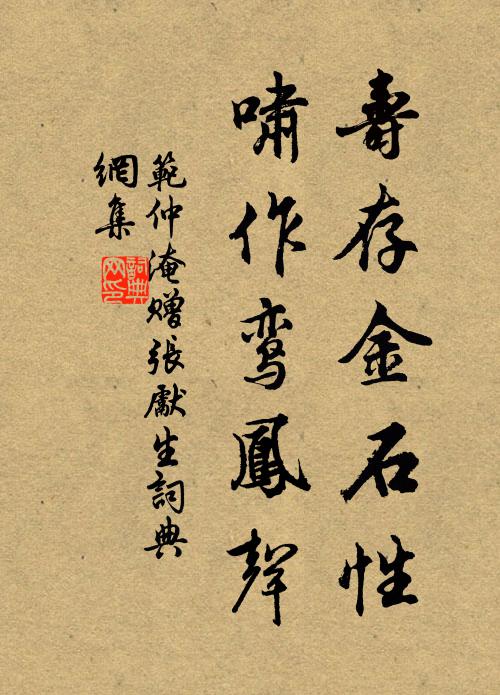 壽存金石性
嘯作鸞鳳聲
範仲淹贈張獻生詞典
網集
詞典
网印